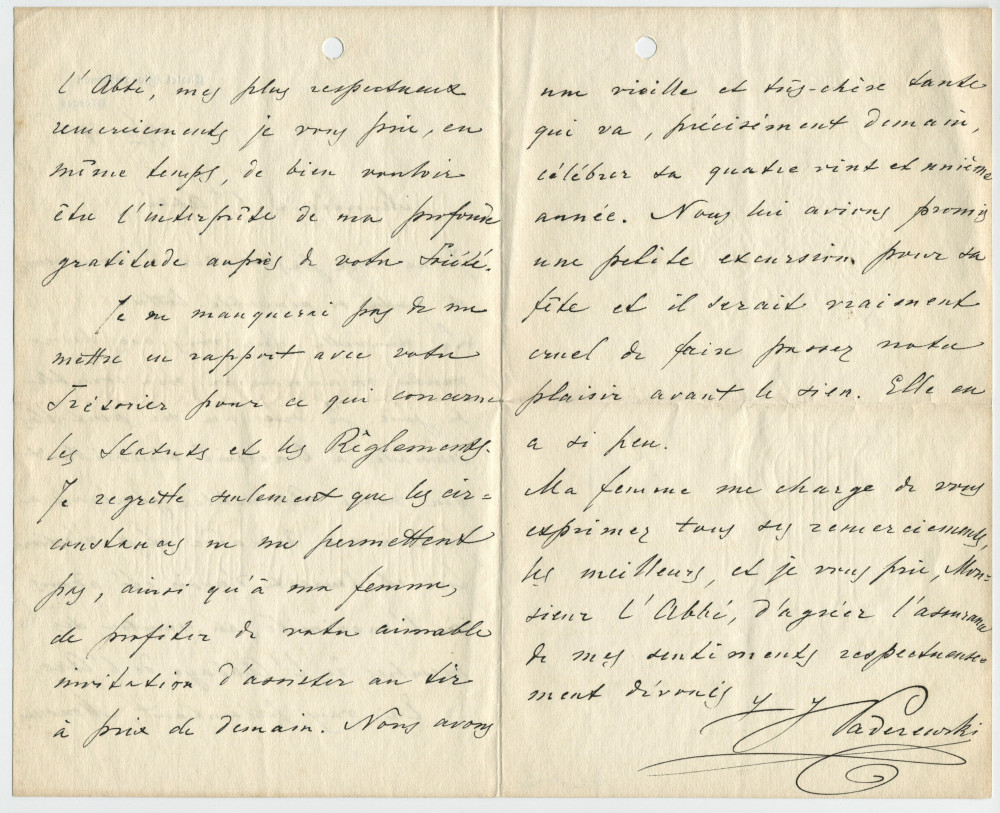 l'Abbé, mes plus respectueux
remerciements je vous prie, en
même temps, de bien vouloir
être l'interprète de ma profonde
gratitude auprès de votre Société.
Je ne manquerai pas de me
mettre en rapport avec votre
Trésorier pour ce qui concerne
les Statuts et les Règlements.
Je regrette seulement que les cir=
constances ne me permettent
pas, ainsi qu'à ma femme,
de profiter de votre aimable
invitation d'assister au tir
à prix de demain. Nous avons
une vieille et très-chère tante
qui va, précisément demain,
célébrer sa quatre vint et unième
année. Nous lui avions promis
une petite excursion pour sa
fête et il serait vraiment
cruel de faire passer notre
plaisir avant le sien. Elle en
a si peu.
Ma femme me charge de vous
exprimer tous ses remerciements,
les meilleurs, et je vous prie, Mon=
sieur l'Abbé, d'agréer l'assurance
de mes sentiments respectueuse=
ment dévoués
I J Paderewski